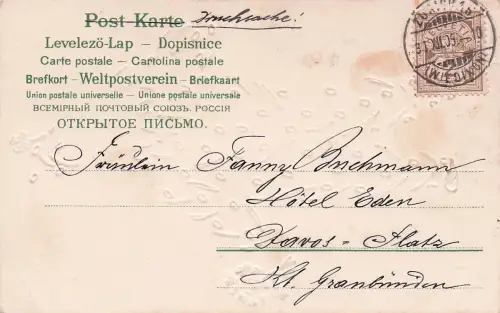 Post-Karte Drucksache!
Levelező-Lap — Dopisnice
Carte postale — Cartolina postale
Brefkort - Weltpostverein - Briefkaart
Union postale universelle — Unione postale universale
ВСЕМІРНЫЙ ПОЧТОВЫЙ СОЮЗЪ. РОССІЯ
ОТКРЫТОЕ ПИСЬМО.
Fräulein Fanny Buchmann
Hôtel Eden
Davos - Platz
Kt. Graubünden